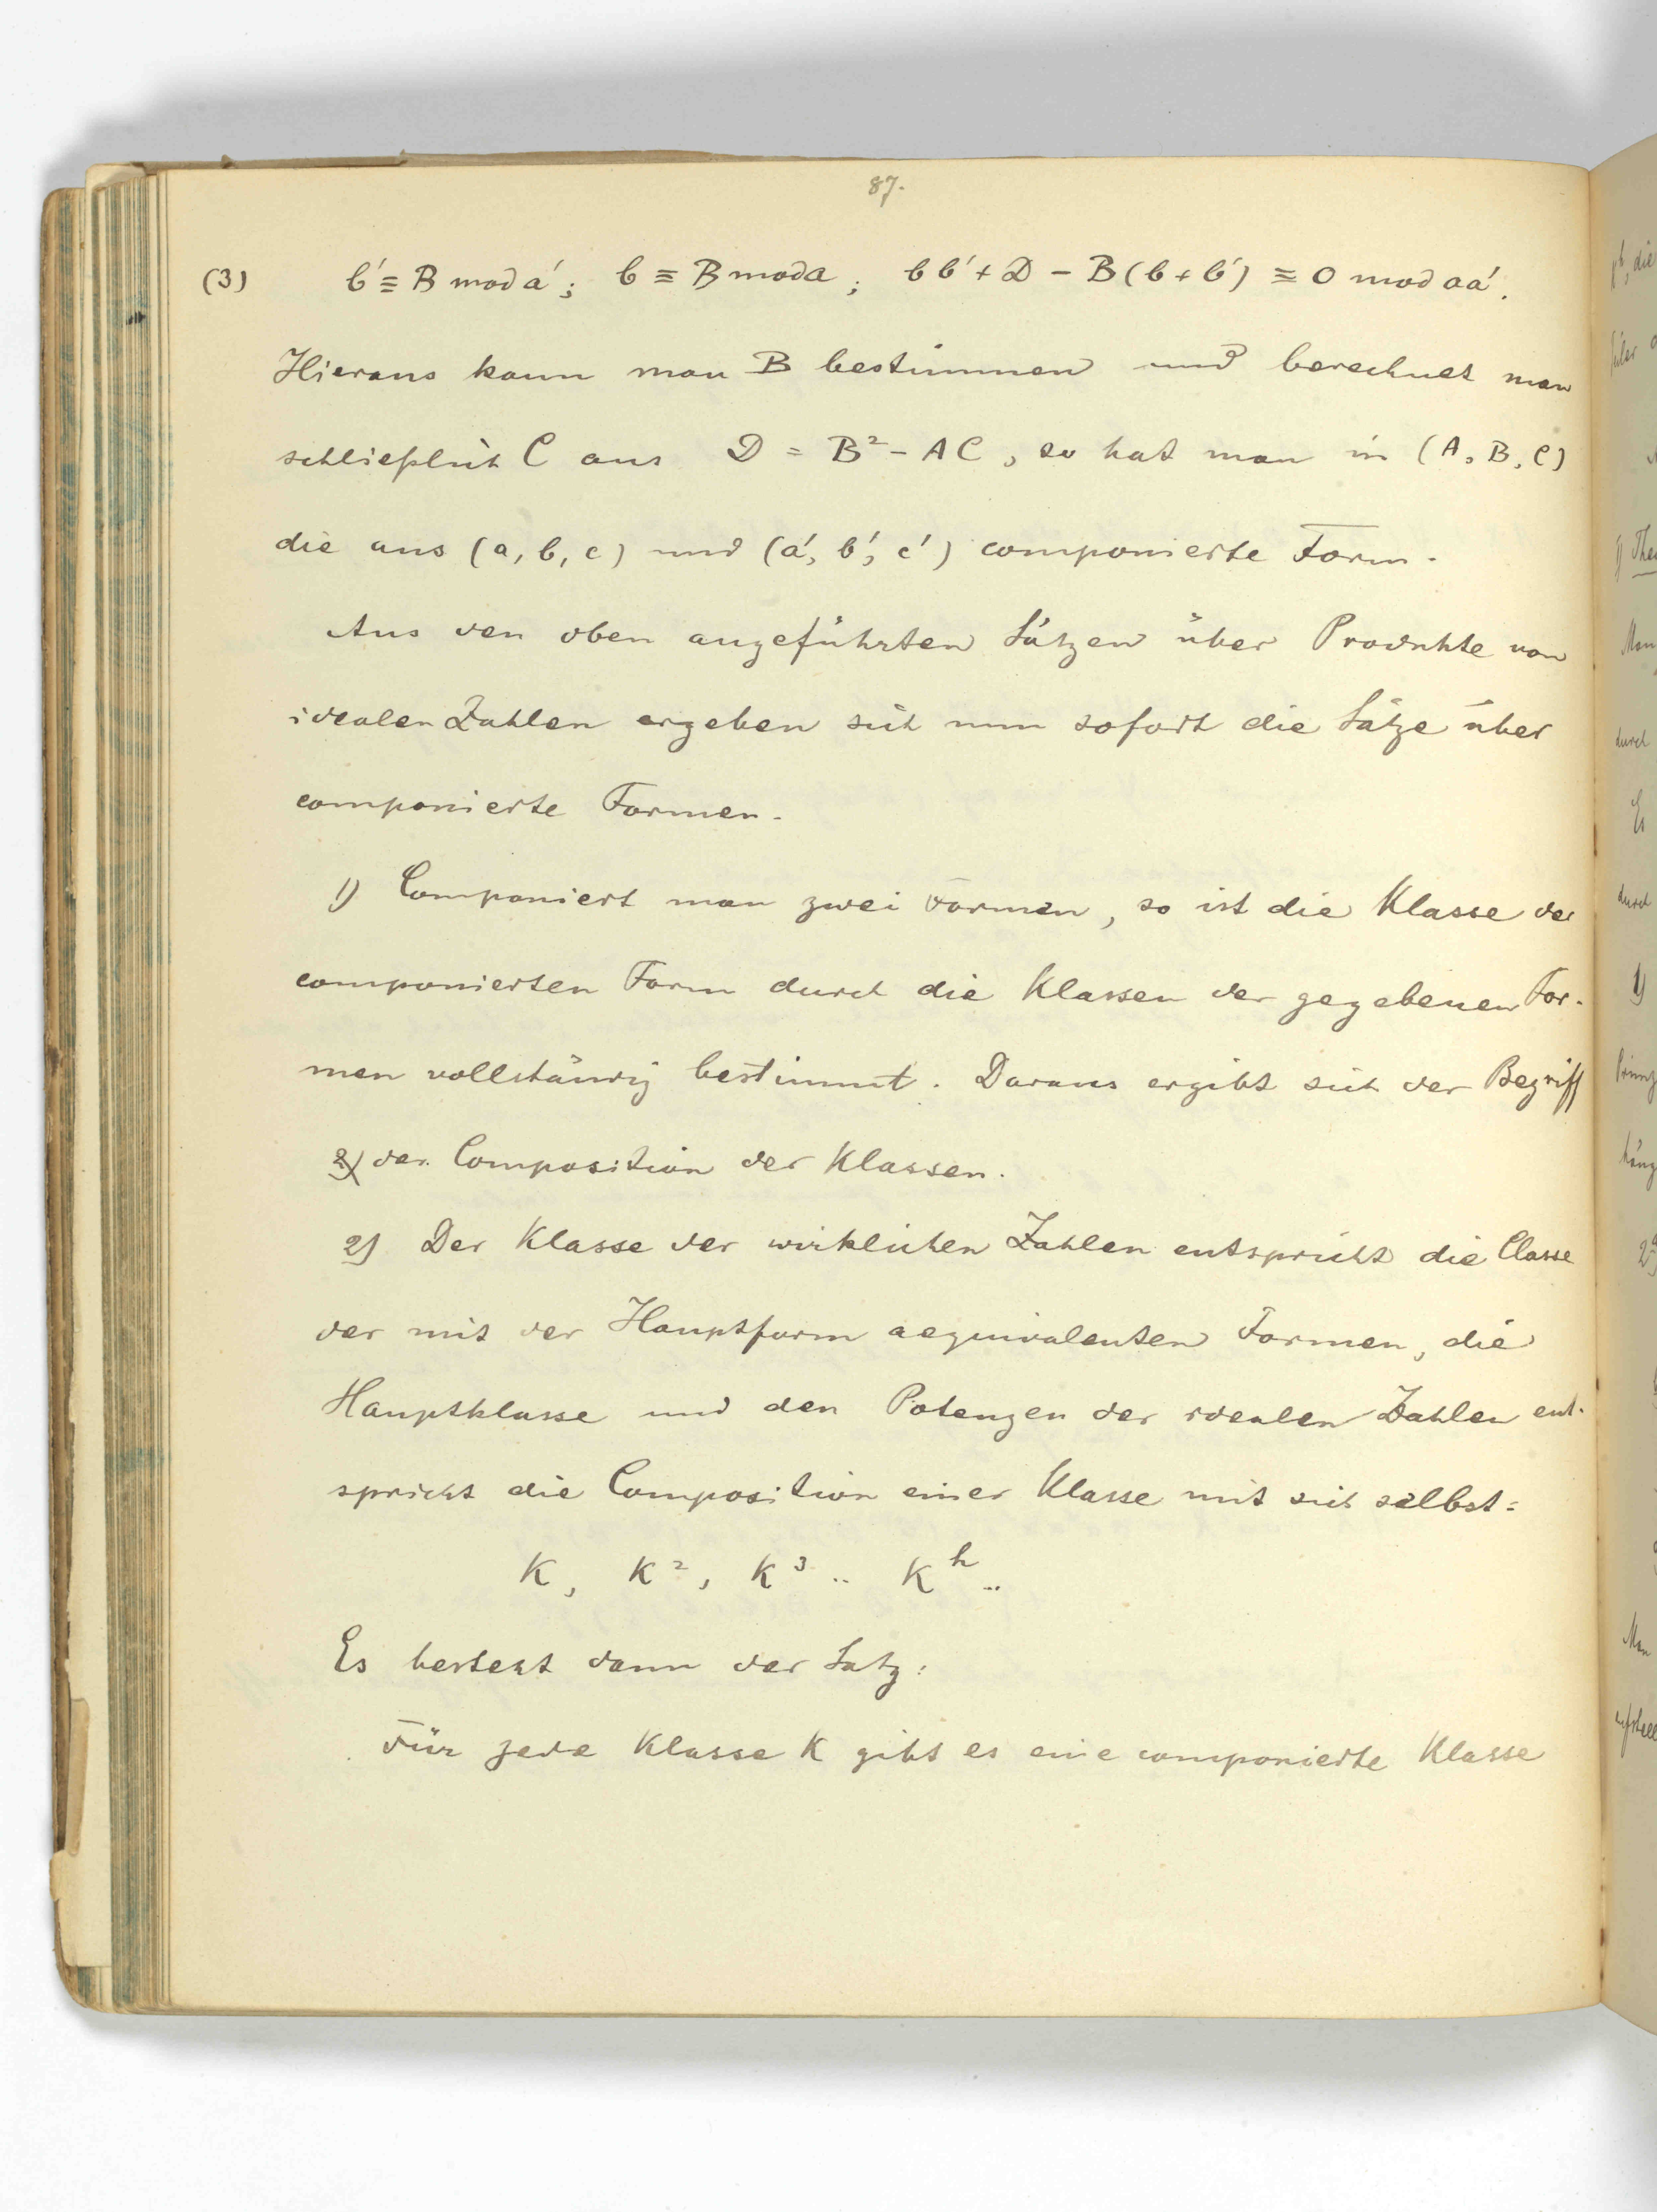 87.
(3) b′ ≡ B mod a′; b ≡ B mod a; bb′ + D − B(b + b′) ≡ 0 mod aa′.
Hieraus kann man B bestimmen und berechnet man
schließlich C aus D = B² − AC, so hat man in (A, B, C)
die aus (a, b, c) und (a′, b′, c′) componierte Form.
Aus den oben angeführten Sätzen über Produkte von
idealen Zahlen ergeben sich nun sofort die Sätze über
componierte Formen.
1) Componiert man zwei Formen, so ist die Klasse der
componierten Form durch die Klassen der gegebenen For-
men vollständig bestimmt. Daraus ergibt sich der Begriff
2) der Composition der Klassen.
2) Der Klasse der wirklichen Zahlen entspricht die Classe
der mit der Hauptform aequivalenten Formen, die
Hauptklasse und den Potenzen der idealen Zahlen ent-
spricht die Composition einer Klasse mit sich selbst:
K, K², K³ .. Kʰ ..
Es besteht dann der Satz:
Für jede Klasse K gibt es eine componierte Klasse